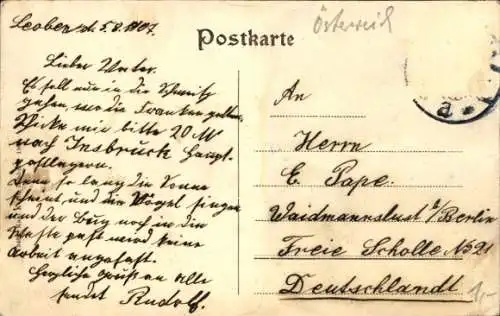 Leoben d. 5.8.1907.
Österreich
Postkarte
Lieber Vater.
Es soll nun in die Schweiz
gehen, wo die Franken gelten.
Schicke mir bitte 20 M
nach Insbruck Haupt-
postlagern.
Denn so lang die Sonne
scheint, und die Vögel singen
und der Burg noch in die
paßt wird keine
Arbeit angefaßt.
Herzliche Grüße an alle
sendet Rudolf.
An
Herrn
E. Pape.
Waidmannslust b/Berlin
Freie Scholle No 21
Deutschlandt
1,-
a